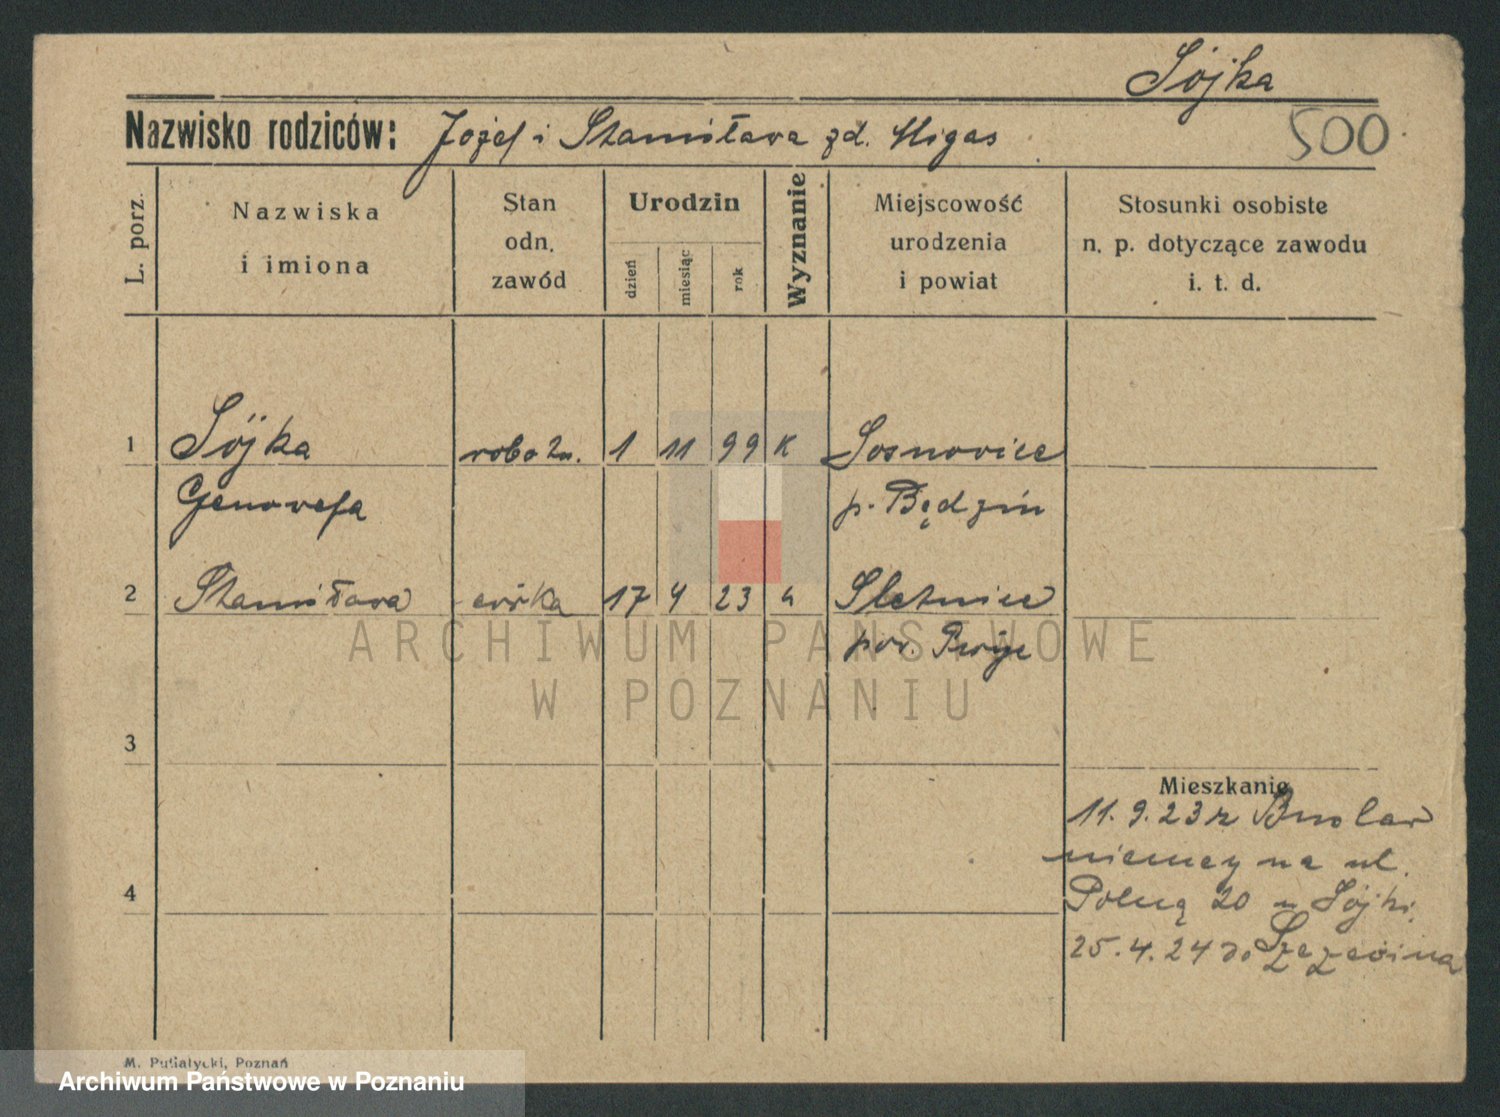 Sójka
Nazwisko rodziców: Józef i Stanisława zd. Migas
500
L. porz.
Nazwiska
i imiona
Stan
odn.
zawód
Urodzin
dzień
miesiąc
rok
Wyznanie
Miejscowość
urodzenia
i powiat
Stosunki osobiste
n. p. dotyczące zawodu
i. t. d.
1 Sójka robotn. 1 11 99 K Sosnovice
Genovefa p. Będzin
2 Stanisława córka 17 4 23
pow.
3
4
Mieszkanie
11.9.23 z
niemcy na ul.
Polną 20 u Sójki
25.4.24 do
M. Putiatycki, Poznań
ARCHIWUM PAŃSTWOWE
W POZNANIU
Archiwum Państwowe w Poznaniu